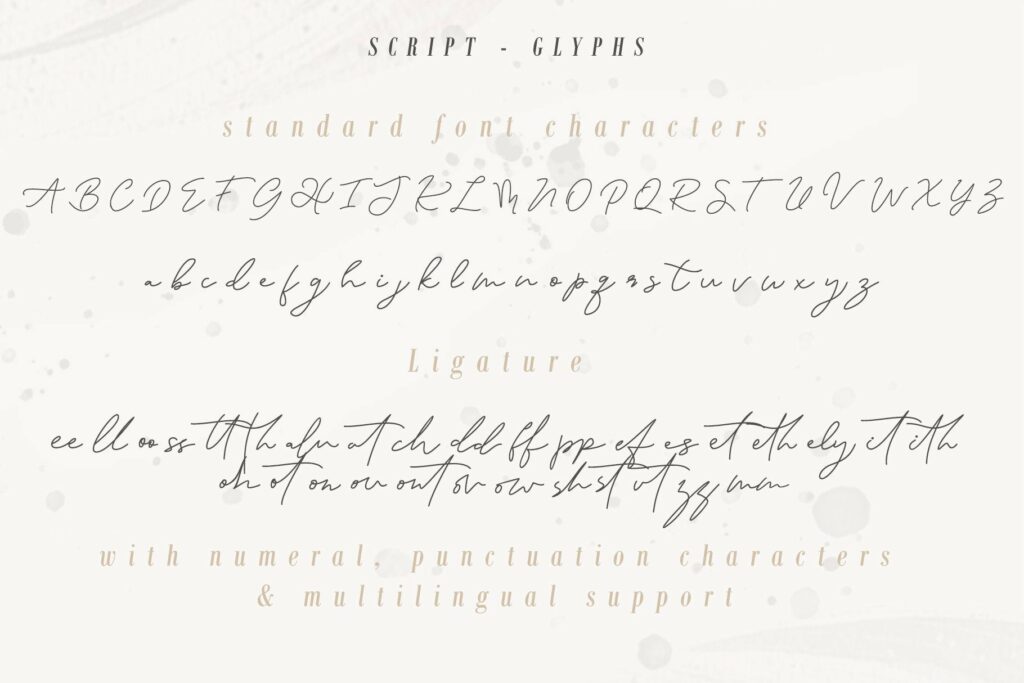 SCRIPT - GLYPHS
standard font characters
A B C D E F G H I J K L M N O P Q R S T U V W X Y Z
a b c d e f g h i j k l m n o p q r s t u v w x y z
Ligature
ee ll oo ss tt th al at ch dd ff pp ef es et eth ely it ith
oh ot on ou ont or ow sh st zz mm
with numeral, punctuation characters
& multilingual support